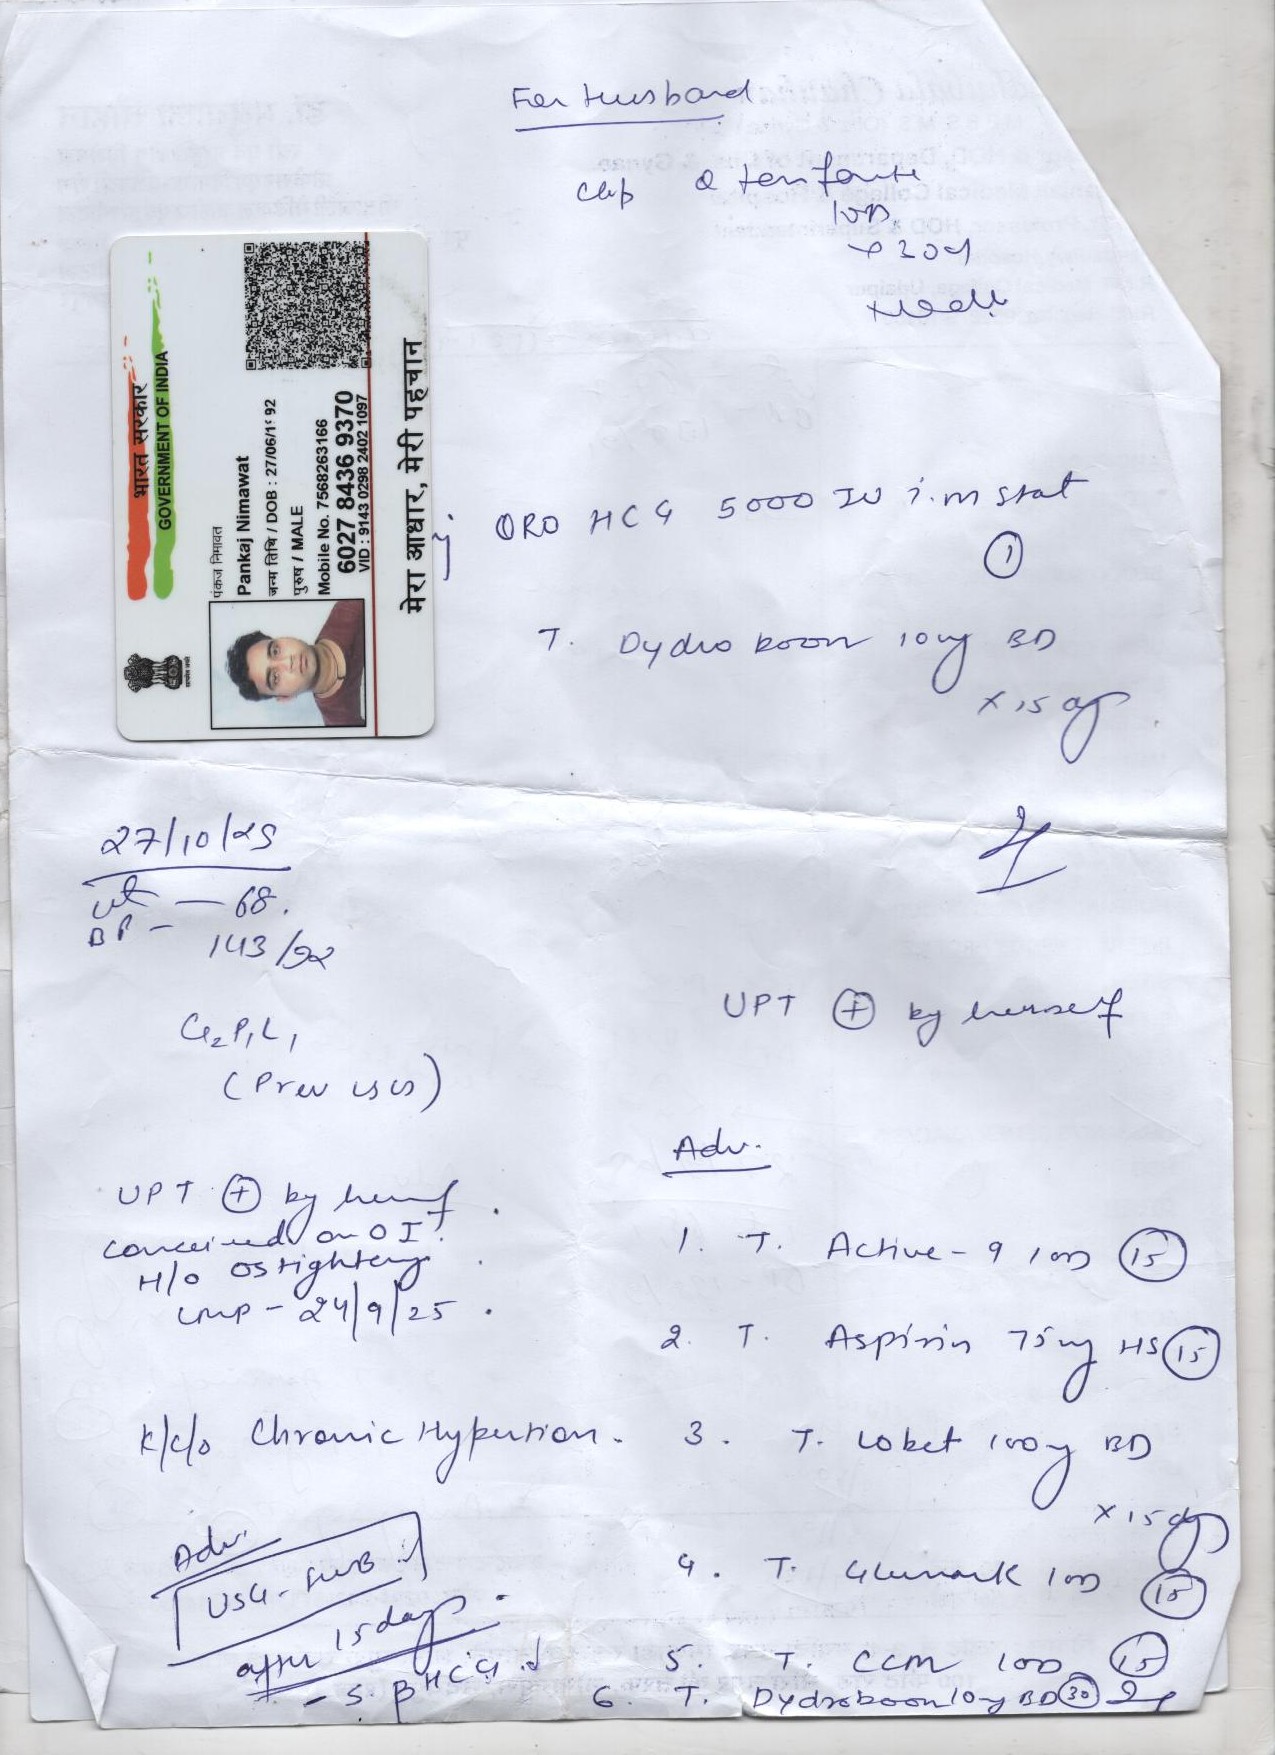 For Husband
cap
10D
x 30d
भारत सरकार
GOVERNMENT OF INDIA
पंकज निमावत
Pankaj Nimawat
जन्म तिथि / DOB : 27/06/1992
पुरुष / MALE
Mobile No. 7568263166
6027 8436 9370
VID : 9143 0298 2402 1097
मेरा आधार, मेरी पहचान
ORO HCG 5000 IU i.m stat
1
T. Dydroboon 10mg BD
x 15 day
27/10/25
wt — 68.
BP — 143/92
G2P1L1
(Prev LSCS)
UPT + by herself
conceived on OI
H/O OS tightening
LMP - 24/9/25
K/c/o Chronic Hypertion.
Adv.
USG - FWB
after 15 days
- S. β HCG
UPT + by herself
Adv.
1. T. Active-9 10D 15
2. T. Aspirin 75mg HS 15
3. T. Lobet 100mg BD
x 15 day
4. T. 10D 15
5. T. CCM 10D 15
6. T. Dydroboon 10mg BD 30